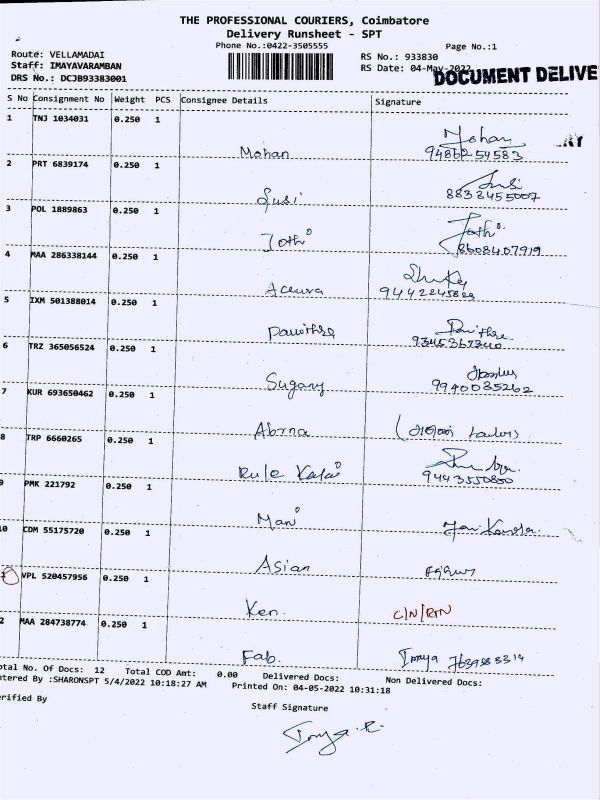 THE PROFESSIONAL COURIERS, Coimbatore
Delivery Runsheet - SPT
Phone No.:0422-3505555
Page No.:1
Route: VELLAMADAI
Staff: IMAYAVARAMBAN
DRS No.: DCJB93383001
RS No.: 933830
RS Date: 04-May-2022
DOCUMENT DELIVE
S No Consignment No Weight PCS Consignee Details Signature
1 TNJ 1034031 0.250 1
Mohan Mohan
9486254583
2 PRT 6839174 0.250 1
Susi Susi
8838455007
3 POL 1889863 0.250 1
Jothi Jothi
8608407919
4 MAA 286338144 0.250 1
9442245829
5 IXM 501388014 0.250 1
Pavithra Pavithra
6 TRZ 365056524 0.250 1
Sugany
9940035262
7 KUR 693650462 0.250 1
Abrna
8 TRP 6660265 0.250 1
Rule Kalai
9443550800
9 PMK 221792 0.250 1
Mani
10 CDM 55175720 0.250 1
Asian
VPL 520457956 0.250 1
Ken. C/N/RTN
2 MAA 284738774 0.250 1
Fab. Imaya 7639283314
otal No. Of Docs: 12 Total COD Amt: 0.00 Delivered Docs: Non Delivered Docs:
tered By :SHARONSPT 5/4/2022 10:18:27 AM Printed On: 04-05-2022 10:31:18
erified By
Staff Signature
Imaya.R.